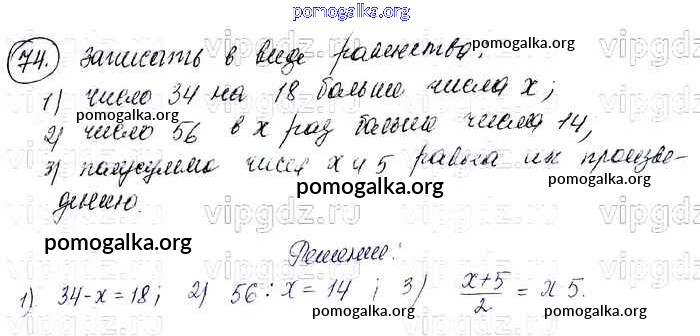 pomogalka.org
74. Записать в виде равенства:
1) число 34 на 18 больше числа x;
pomogalka.org
2) число 56 в x раз больше числа 14,
pomogalka.org
3) полусумма чисел x и 5 равна их произве-
pomogalka.org
дению.
pomogalka.org
Решение:
1) 34-x=18; 2) 56:x=14; 3) x+5/2 = x 5.
pomogalka.org